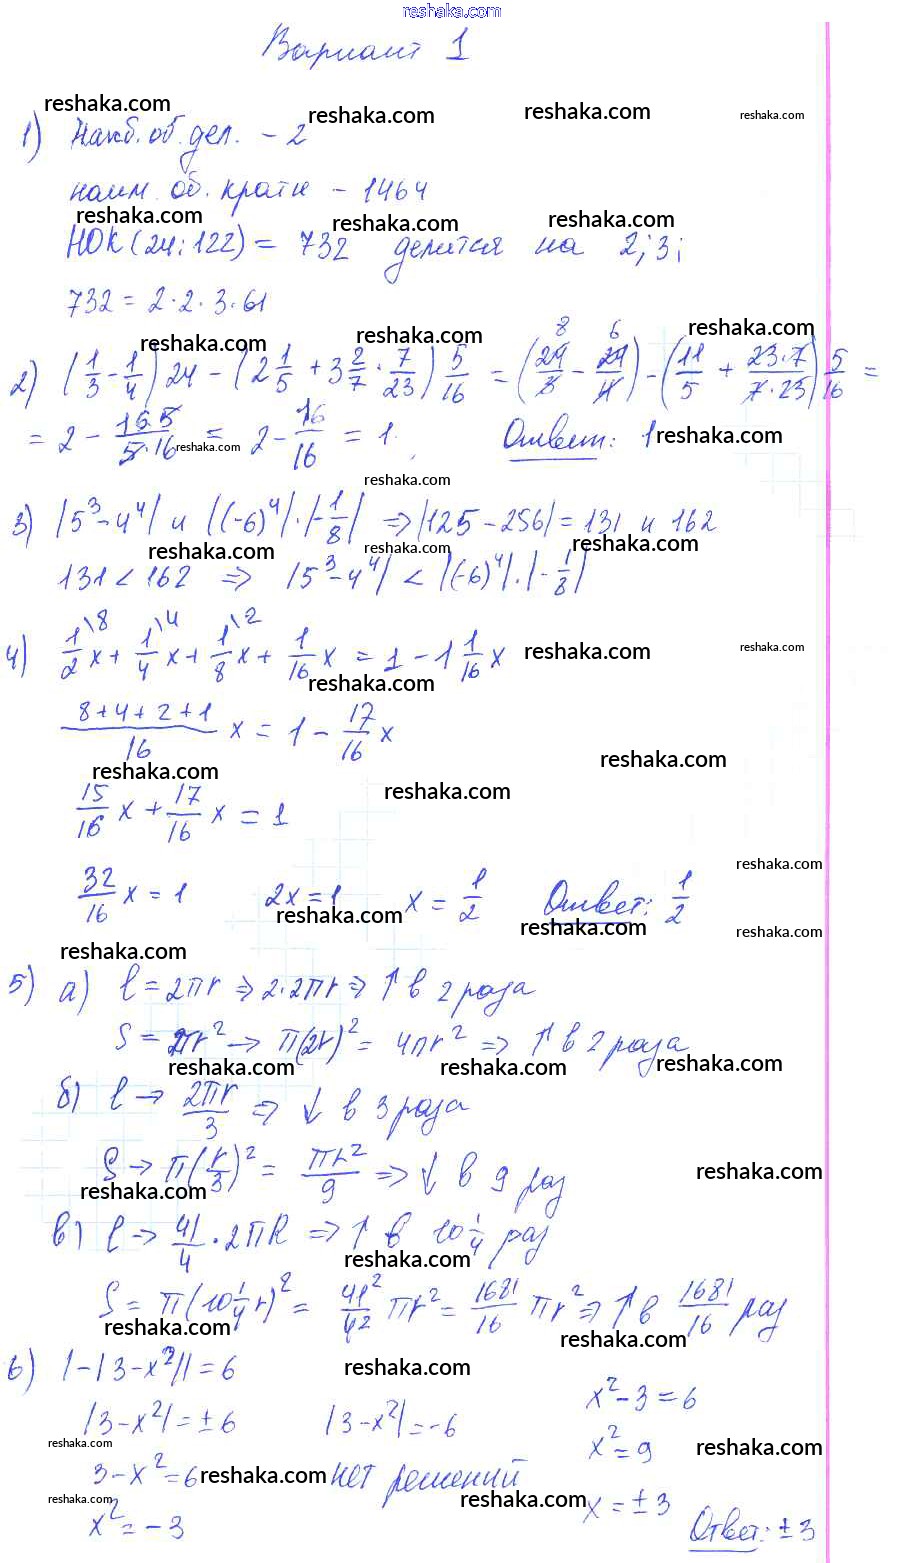 reshaka.com
Вариант 1
reshaka.com reshaka.com reshaka.com reshaka.com
1) Наиб. об. дел. - 2
наим. об. кратн - 1464
reshaka.com reshaka.com reshaka.com
НОК (24; 122) = 732 делится на 2; 3;
732 = 2·2·3·61
reshaka.com reshaka.com reshaka.com
2) (1/3 - 1/4) 24 - (2 1/5 + 3 2/7 · 7/23) 5/16 = (24/3 - 24/4) - (11/5 + 23·7/7·23) 5/16 =
8 6
= 2 - 16·5/5·16 = 2 - 16/16 = 1. Ответ: 1
reshaka.com reshaka.com
reshaka.com
3) |5³-4⁴| и |(-6)⁴|·|-1/8| ⇒ |125-256| = 131 и 162
reshaka.com reshaka.com reshaka.com
131 < 162 ⇒ |5³-4⁴| < |(-6)⁴|·|-1/8|
4) 1/2\8 x + 1/4\4 x + 1/8\2 x + 1/16 x = 1 - 1 1/16 x
reshaka.com reshaka.com
reshaka.com
8+4+2+1/16 x = 1 - 17/16 x
reshaka.com reshaka.com
reshaka.com
15/16 x + 17/16 x = 1
reshaka.com
32/16 x = 1 2x = 1 x = 1/2 Ответ: 1/2
reshaka.com reshaka.com reshaka.com
reshaka.com
5) а) l = 2πr ⇒ 2·2πr ⇒ ↑ в 2 раза
S = πr² → π(2r)² = 4πr² ⇒ ↑ в 2 раза
reshaka.com reshaka.com reshaka.com
б) l → 2πr/3 ⇒ ↓ в 3 раза
S → π(r/3)² = πr²/9 ⇒ ↓ в 9 раз
reshaka.com reshaka.com
в) l → 41/4 · 2πR ⇒ ↑ в 10 1/4 раз
reshaka.com
S = π(10 1/4 r)² = 41²/42 πr² = 1681/16 πr² ⇒ ↑ в 1681/16 раз
reshaka.com reshaka.com
6) |-|3-x²|| = 6
reshaka.com
|3-x²| = ±6 |3-x²| = -6 x²-3 = 6
reshaka.com reshaka.com
3-x² = 6 нет решений x² = 9
reshaka.com
reshaka.com reshaka.com
x² = -3 x = ±3 Ответ: ±3